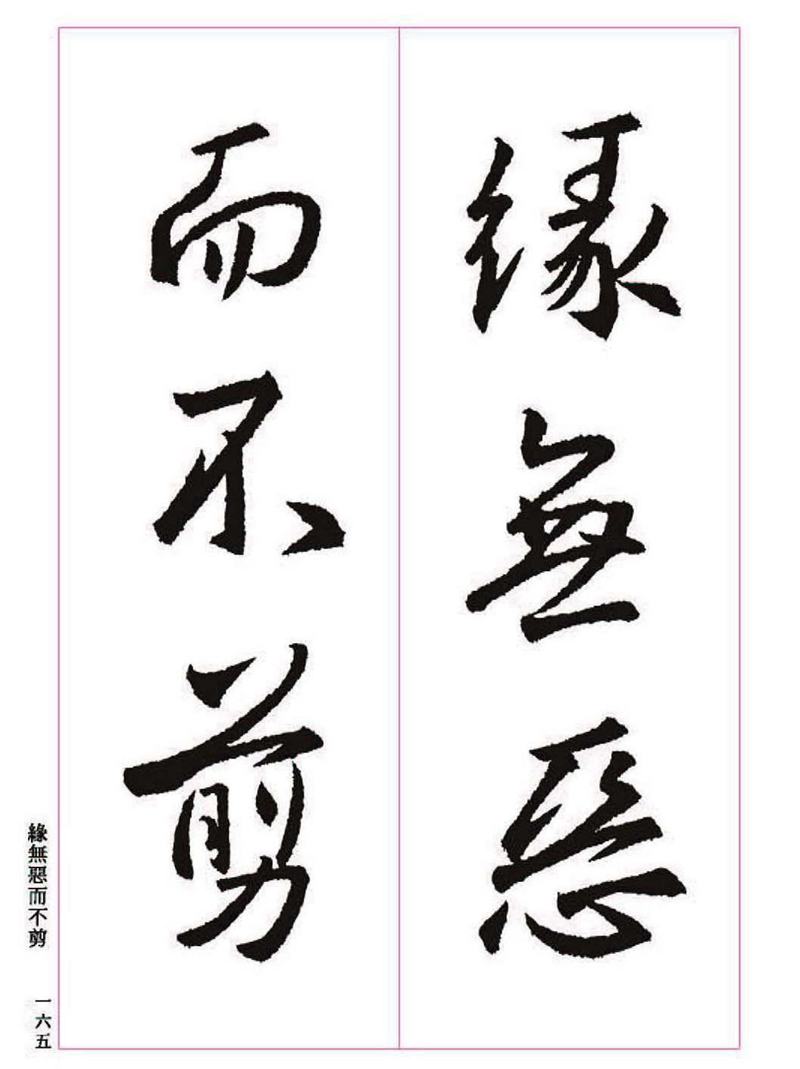 緣無惡
而不剪
緣無惡而不剪
一六五